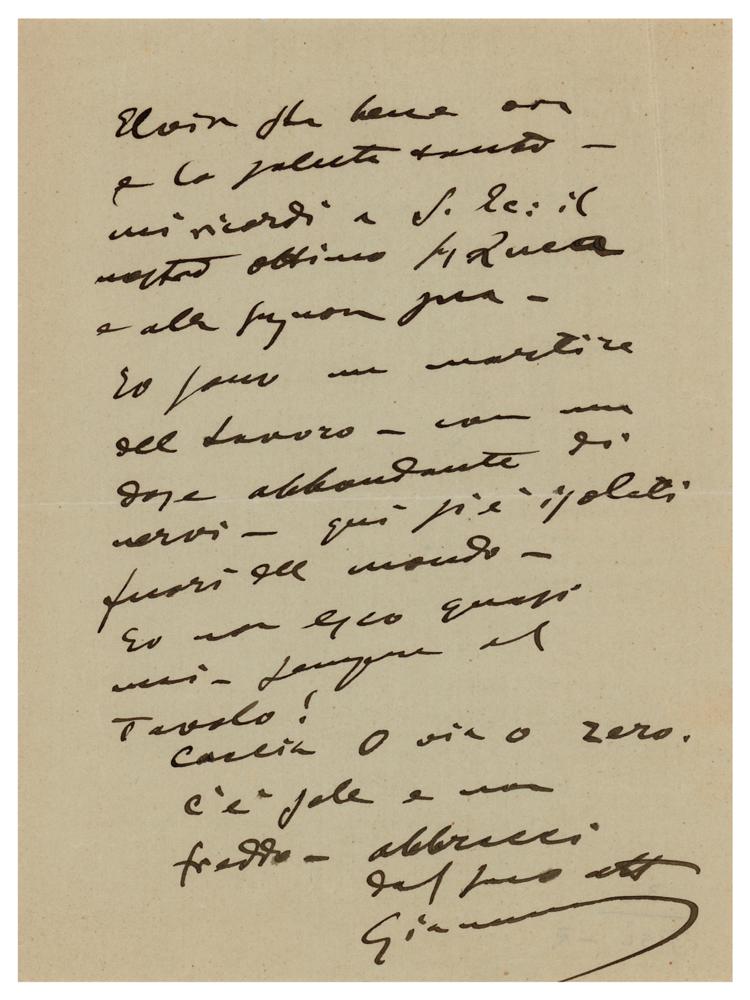 Elvira sta bene ora
e la saluta tanto –
mi ricordi a S. Ec: il
nostro ottimo
e alla signora sua –
Io sono un martire
del lavoro – con una
dose abbondante di
nervi – qui si è isolati
fuori del mondo –
Io non esco quasi
mai – sempre al
Tavolo!
Caccia 0 via 0 zero.
c'è sole e non
freddo – abbracci
dal suo